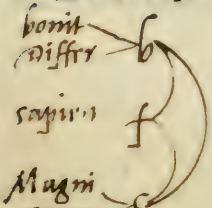 bonit b
Differ
sapien f
Magni c